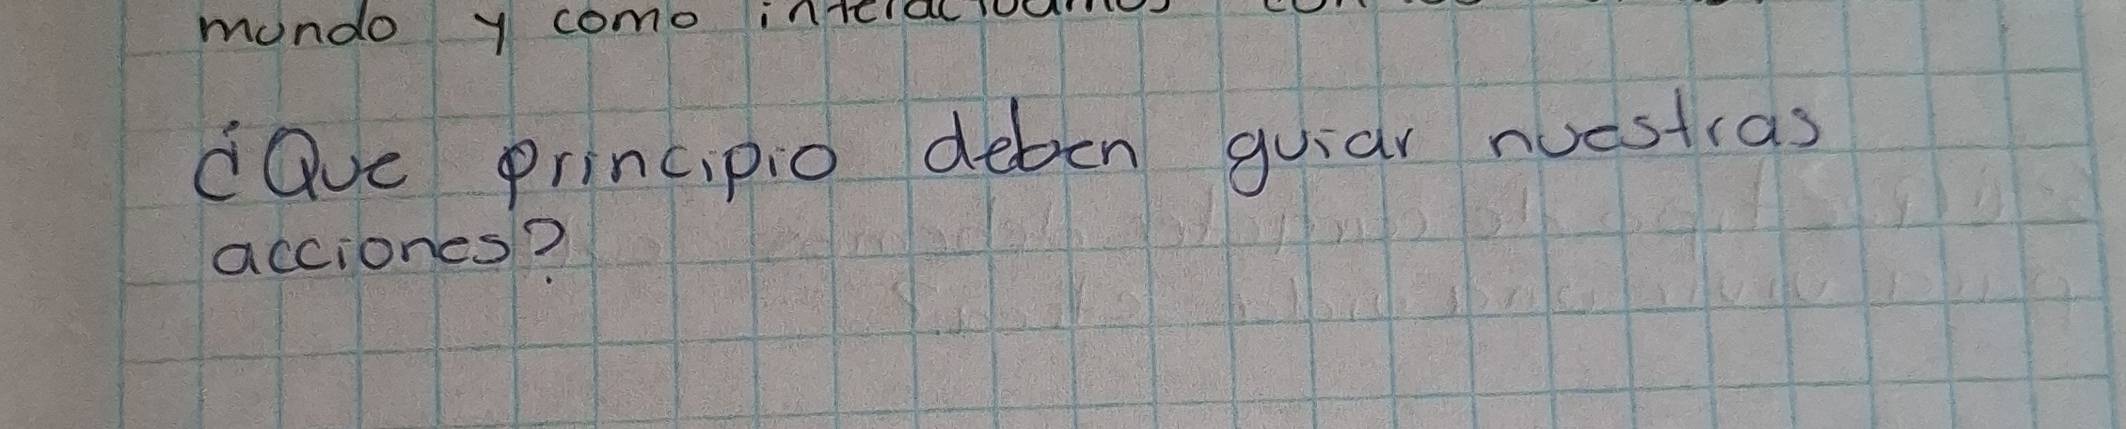 mundo y como
¿Que principio deben guiar nuestras
acciones?